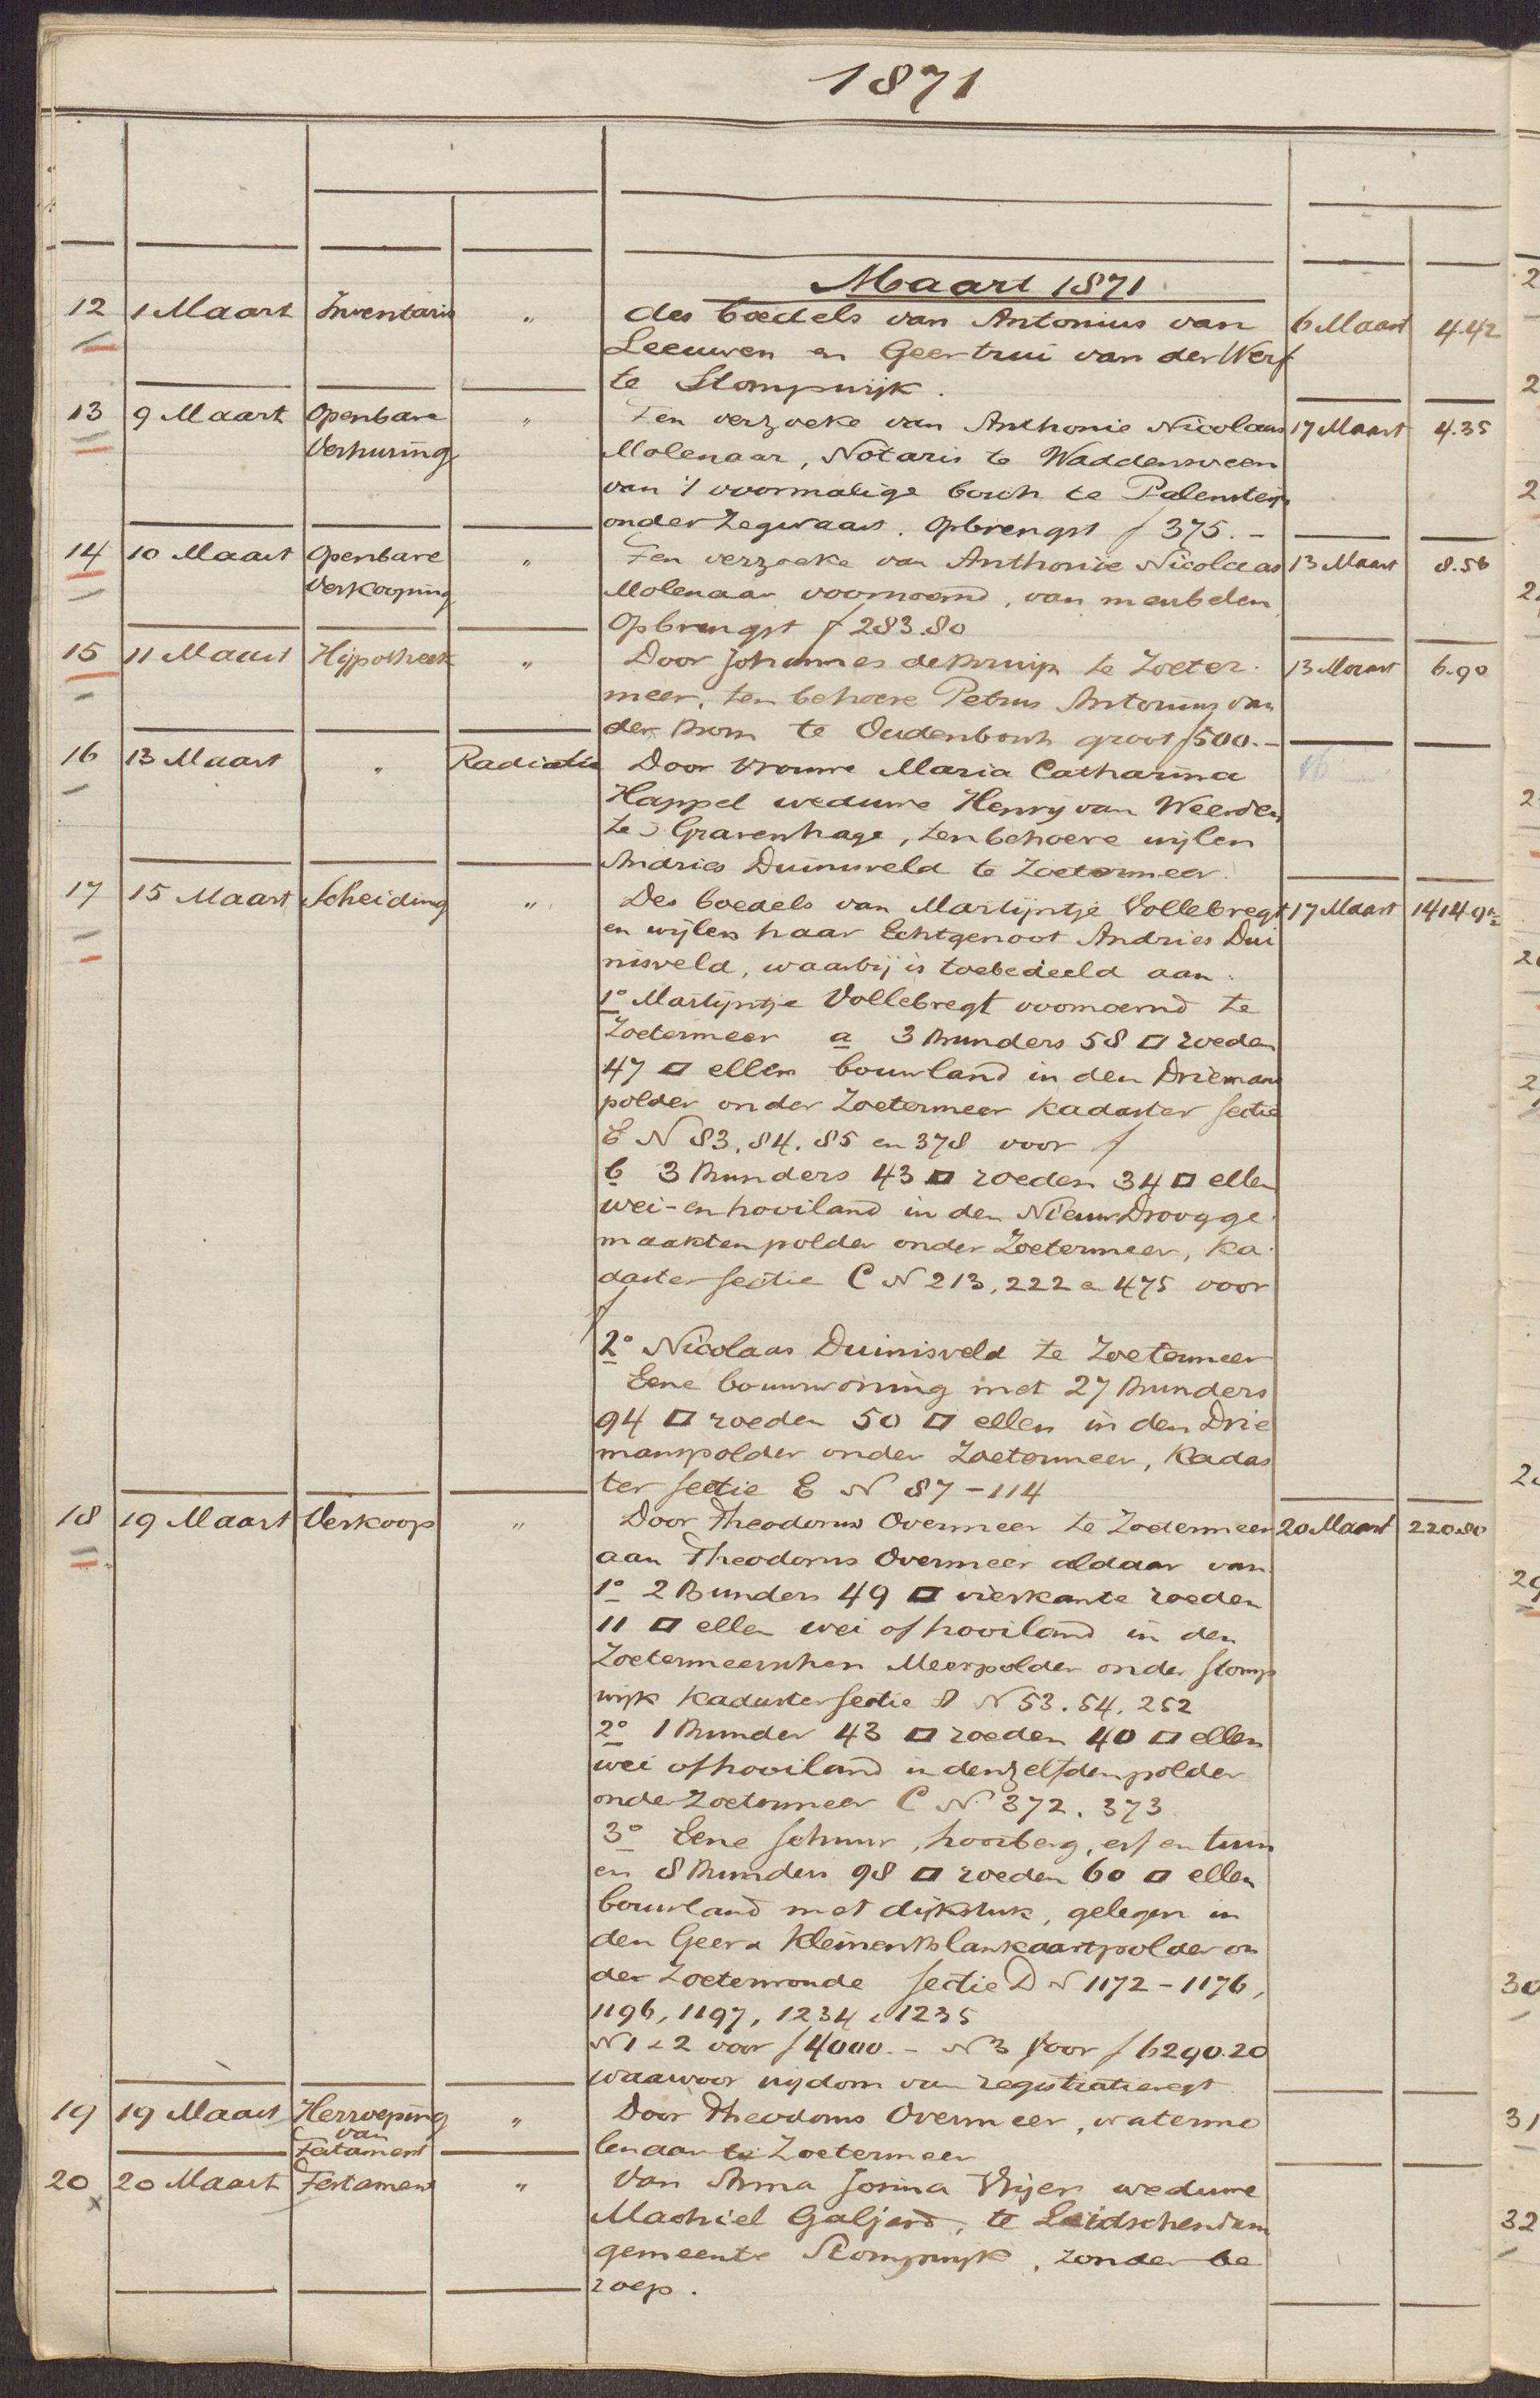 1871
Maart 1871
12 1 Maart Inventaris " des boedels van Antonius van 6 Maart 4.42
Leeuwen en Geertrui van der Werf
te Stompwijk.
13 9 Maart Openbare " Ten verzoeke van Anthonie Nicolaas 17 Maart 4.35
Verhuring Molenaar, Notaris te Waddinxveen
van 't voormalige bosch te Palenstein
onder Zegwaart. Opbrengst f 375.-
14 10 Maart Openbare " Ten verzoeke van Anthonie Nicolaas 13 Maart 8.56
Verkooping Molenaar voornoemd, van meubelen
Opbrengst f 283.80
15 11 Maart Hypotheek " Door Johannes de Bruijn te Zoeter- 13 Maart 6.90
meer, ten behoeve Petrus Antonius van
der Bom te Oudenbosch groot f 500.-
16 13 Maart " Radiatie Door Vrouwe Maria Catharina 16
Happel weduwe Henry van Weerden
te 's Gravenhage, ten behoeve wijlen
Andries Duinisveld te Zoetermeer.
17 15 Maart Scheiding " Des boedels van Martijntje Vollebregt 17 Maart 1414.9
en wijlen haar Echtgenoot Andries Dui
nisveld, waarbij is toebedeeld aan:
1o Martijntje Vollebregt voornoemd te
Zoetermeer a 3 Bunders 58 □ roeden
47 □ ellen bouwland in den Driemans
polder onder Zoetermeer kadaster sectie
E N 83, 84, 85 en 378 voor f
b 3 Bunders 43 □ roeden 34 □ ellen
wei- en hooiland in den Nieuw Droogge-
maakten polder onder Zoetermeer, Ka-
daster sectie C N 213, 222 en 475 voor
f
2o Nicolaas Duinisveld te Zoetermeer
Eene bouwwoning met 27 Bunders
94 □ roeden 50 □ ellen in den Drie
manspolder onder Zoetermeer, Kadas
ter sectie E N 87-114
18 19 Maart Verkoop " Door Theodorus Overmeer te Zoetermeer 20 Maart 220.80
aan Theodorus Overmeer aldaar van
1o 2 Bunders 49 □ vierkante roeden
11 □ ellen wei of hooiland in den
Zoetermeerschen Meerpolder onder Stomp
wijk Kadaster sectie N 53. 54. 252
2o 1 Bunder 43 □ roeden 40 □ ellen
wei of hooiland in denzelfden polder
onder Zoetermeer C N 372. 373
3o Eene schuur, hooiberg, erf en tuin
en 8 Bunders 98 □ roeden 60 □ ellen
bouwland met dijkstuk, gelegen in
den Geer & Kleinen Blankaartpolder on
der Zoeterwoude sectie D N 1172-1176,
1196, 1197, 1234 & 1235
N 1 & 2 voor f 4000.- N 3 voor f 6290.20
waarvoor vrijdom van registratieregt
19 19 Maart Herroeping " Door Theodorus Overmeer, watermo
van lenaar te Zoetermeer
Testament
20 20 Maart Testament " Van Anna Josina Vrijer weduwe
x Machiel Galjard, te Leidschendam
gemeente Stompwijk, zonder be
roep.